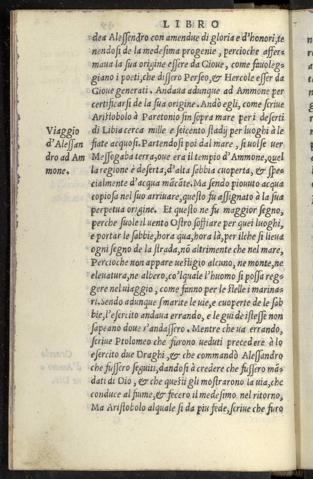 LIBRO
dea Alessendro con amendue di gloria e d'honori, te
nendosi de la medesima progenie, percioche affer-
maua la sua origine essere da Gioue, come fauoleg-
giano i poeti, che dissero Perseo, & Hercole esser da
Gioue generati. Andaua adunque ad Ammone per
certificarsi de la sua origine. Andò egli, come scriue
Aristobolo à Paretonio sin sopra mare per i deserti
Viaggio
d'Alessan
dro ad Am
mone.
di Libia cerca mille e seicento stadij per luoghi à le
fiate acquosi. Partendosi poi dal mare, si uolse uer
Messogaba terra, oue era il tempio d'Ammone, quel
la regione è deserta, d'alta sabbia cuoperta, & spe-
cialmente d'acqua mãcãte. Ma sendo piouuto acqua
copiosa nel suo arriuare, questo fu assignato à la sua
perpetua origine. Et questo ne fu maggior segno,
perche suole il uento Ostro soffiare per quei luoghi,
e portar le sabbie, hora qua, hora là, per ilche si lieua
ogni segno de la strada, nõ altrimente che nel mare,
Percioche non appare uestigio alcuno, ne monte, ne
eleuatura, ne albero, co'lquale l'huomo si possa reg-
gere nel uiaggio, come fanno per le stelle i marina-
ri. Sendo adunque smarite le uie, e cuoperte de le sab
bie, l'esercito andaua errando, e le guide istesse non
sapeano doue s'andassero. Mentre che ua errando,
scriue Ptolomeo che furono ueduti precedere à lo
esercito due Draghi, & che commandò Alessandro
che fussero seguiti, dandosi à credere che fussero mã-
dati di Dio, & che questi gli mostrarono la uia, che
conduce al fiume, & fecero il medesimo nel ritorno,
Ma Aristobolo alquale si da piu fede, scriue che furo